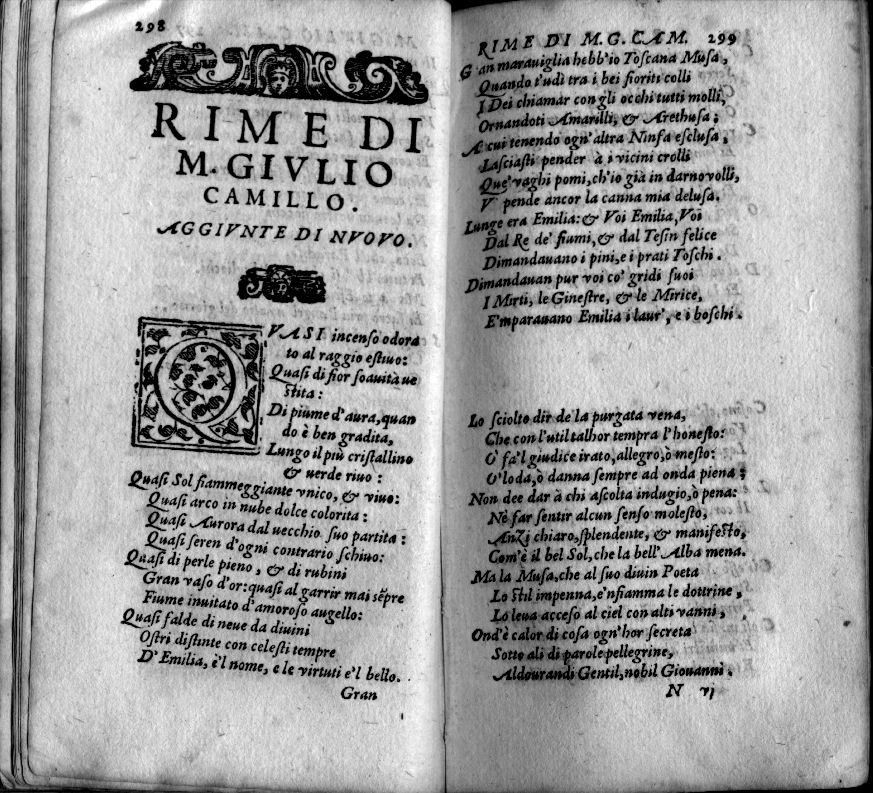 298
RIME DI
M. GIVLIO
CAMILLO.
AGGIVNTE DI NVOVO.
QVASI incenso odora
to al raggio estiuo:
Quasi di fior soauità ue
stita:
Di piume d'aura, quan
do è ben gradita,
Lungo il più cristallino
& uerde riuo:
Quasi Sol fiammeggiante vnico, & viuo:
Quasi arco in nube dolce colorita:
Quasi Aurora dal uecchio suo partita:
Quasi seren d'ogni contrario schiuo:
Quasi di perle pieno, & di rubini
Gran vaso d'or: quasi al garrir mai sẽpre
Fiume inuitato d'amoroso augello:
Quasi falde di neue da diuini
Ostri distinte con celesti tempre
D'Emilia, è'l nome, e le virtuti e'l bello.
Gran
RIME DI M. G. CAM. 299
Gran marauiglia hebb'io Toscana Musa,
Quando t'udì tra i bei fioriti colli
I Dei chiamar con gli occhi tutti molli,
Ornandoti Amarilli, & Arethusa;
Ae cui tenendo ogn'altra Ninfa esclusa,
Lasciasti pender à i vicini crolli
Que' vaghi pomi, ch'io già in darno volli,
V' pende ancor la canna mia delusa.
Lunge era Emilia: & Voi Emilia, Voi
Dal Re de' fiumi, & dal Tesin felice
Dimandauano i pini, e i prati Toschi.
Dimandauan pur voi co' gridi suoi
I Mirti, le Ginestre, & le Mirice,
E'mparauano Emilia i laur', e i boschi.
Lo sciolto dir de la purgata vena,
Che con l'util talhor tempra l'honesto:
O' fa'l giudice irato, allegro, ò mesto:
O' loda, ò danna sempre ad onda piena;
Non dee dar à chi ascolta indugio, ò pena:
Nè far sentir alcun senso molesto,
Anzi chiaro, splendente, & manifesto,
Com'è il bel Sol, che la bell'Alba mena.
Ma la Musa, che al suo diuin Poeta
Lo stil impenna, e'nfiamma le dottrine,
Lo leua acceso al ciel con alti vanni,
Ond'è calor di cosa ogn'hor secreta
Sotto ali di parole pellegrine,
Aldourandi Gentil, nobil Giouanni.
N vj